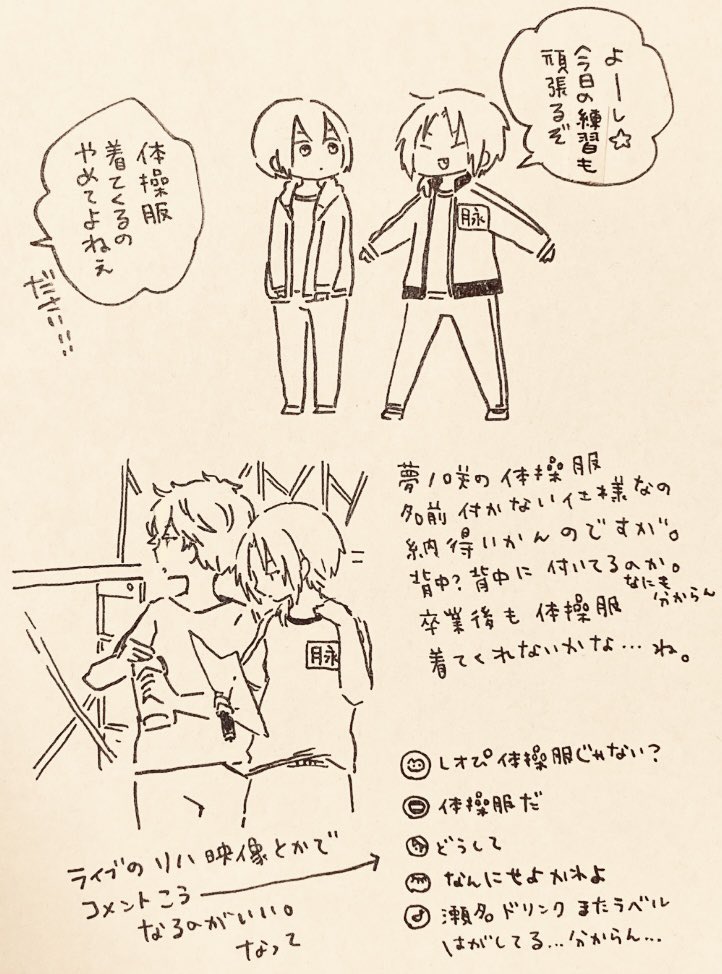 よーし☆
今日の練習も
頑張るぞ
体操服
着てくるの
やめてよねぇ
ださい!!
脉
夢ノ咲の体操服
名前付かない仕様なの
納得いかんのですが。
背中?背中に付いてるのか。
なにも
分からん
卒業後も体操服
着てくれないかな…ね。
脉
レオぴ体操服じゃない?
体操服だ
どうして
なんにせよかわよ
瀬名ドリンクまたラベル
はがしてる…分からん…
ライブのリハ映像とかで
コメントこう
なるのがいい。
なって